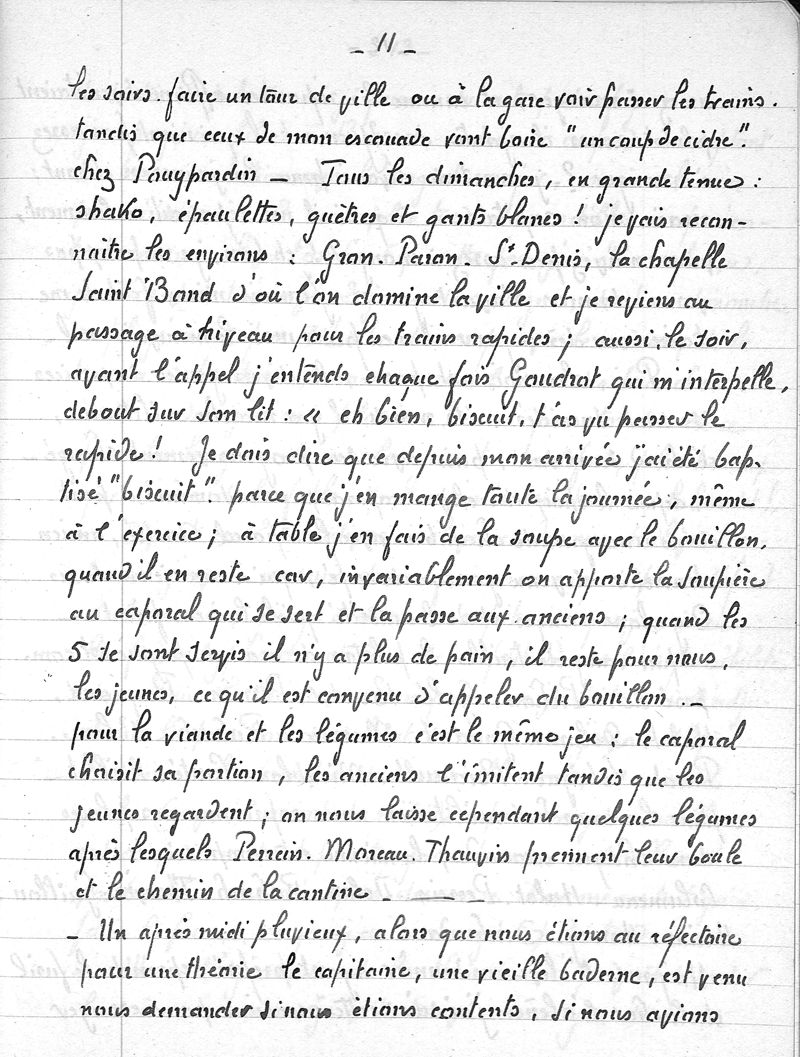 - 11 -
les soirs faire un tour de ville ou à la gare voir passer les trains.
tandis que ceux de mon escouade vont boire "un coup de cidre".
chez Pouypardin — Tous les dimanches, en grande tenue :
shako, épaulettes, guêtres et gants blancs ! je vais recon-
naître les environs : Gron. Paron. St. Denis, la chapelle
Saint Bond d'où l'on domine la ville et je reviens au
passage à niveau pour les trains rapides ; aussi, le soir,
avant l'appel j'entends chaque fois Goudrot qui m'interpelle,
debout sur son lit : « eh bien, biscuit, t'as vu passer le
rapide ! Je dois dire que depuis mon arrivée j'ai été bap-
tisé "biscuit". parce que j'en mange toute la journée, même
à l'exercice ; à table j'en fais de la soupe avec le bouillon,
quand il en reste car, invariablement on apporte la soupière
au caporal qui se sert et la passe aux anciens ; quand les
5 se sont servis il n'y a plus de pain, il reste pour nous,
les jeunes, ce qu'il est convenu d'appeler du bouillon. —
pour la viande et les légumes c'est le même jeu : le caporal
choisit sa portion, les anciens l'imitent tandis que les
jeunes regardent ; on nous laisse cependant quelques légumes
après lesquels Perrein. Moreau. Thauvin prennent leur boule
et le chemin de la cantine - — -
- Un après midi pluvieux, alors que nous étions au réfectoire
pour une théorie le capitaine, une vieille baderne, est venu
nous demander si nous étions contents, si nous avions